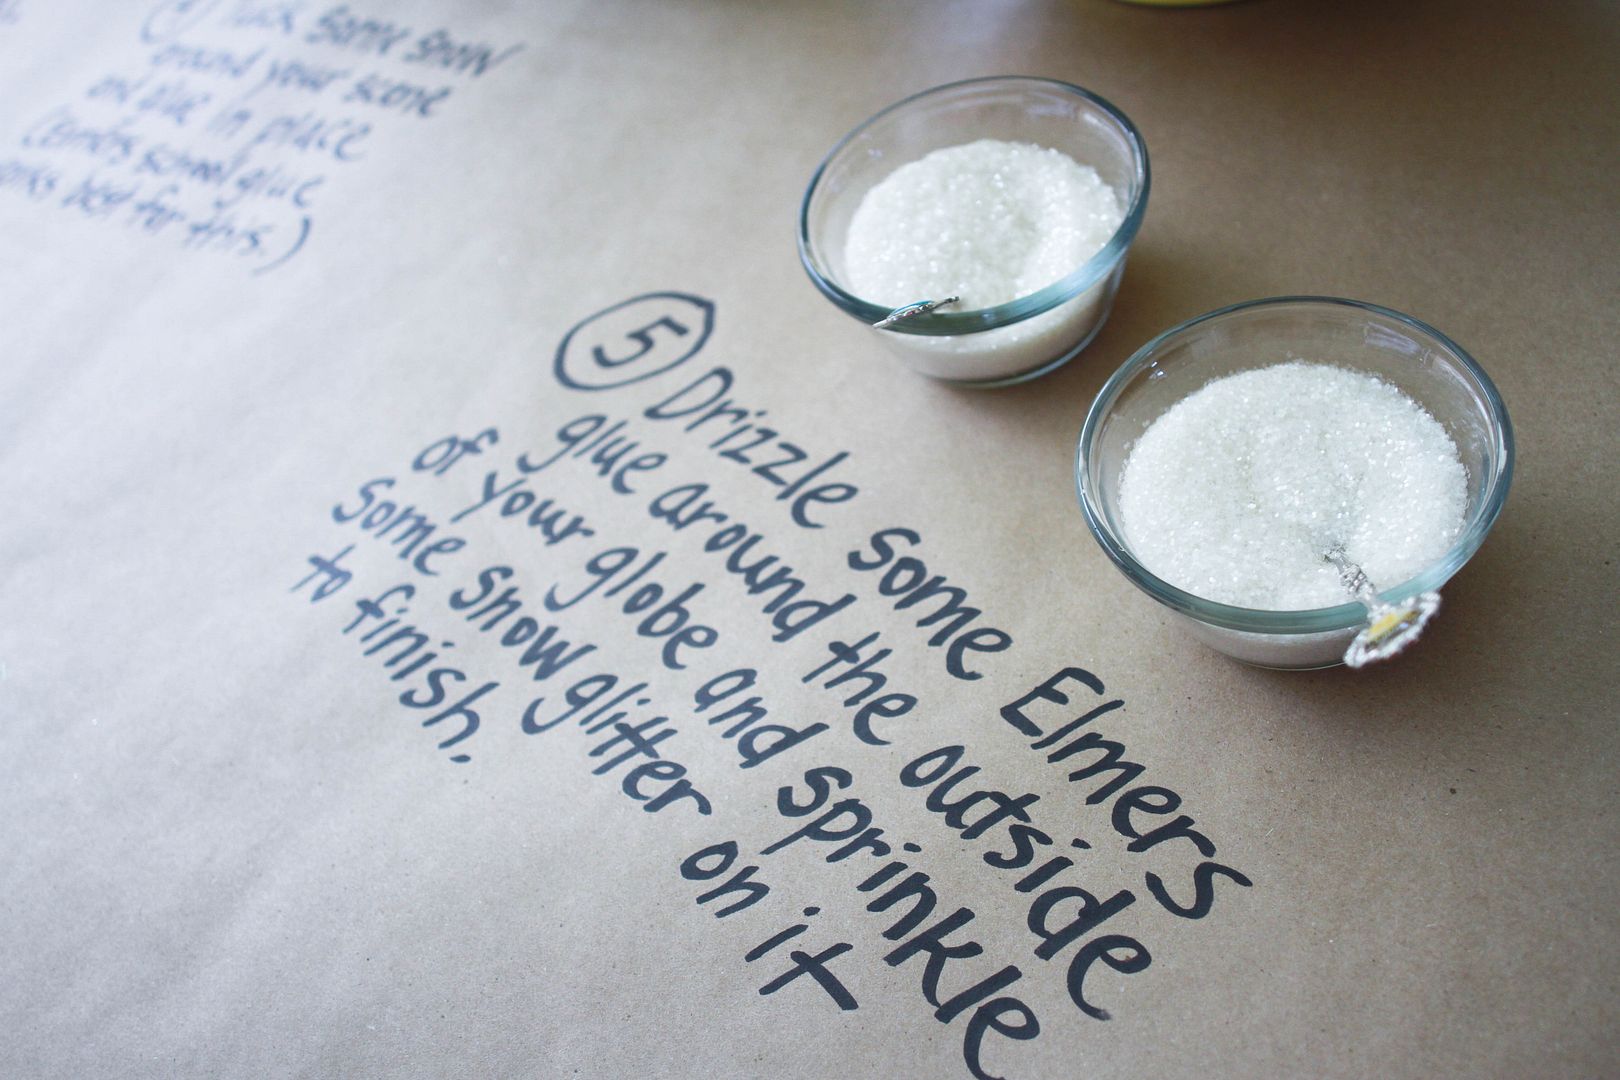 some snow
around your scene
and glue in place
(
works best for this.)
5 Drizzle some Elmers
glue around the outside
of your globe and sprinkle
some snow glitter on it
to finish.